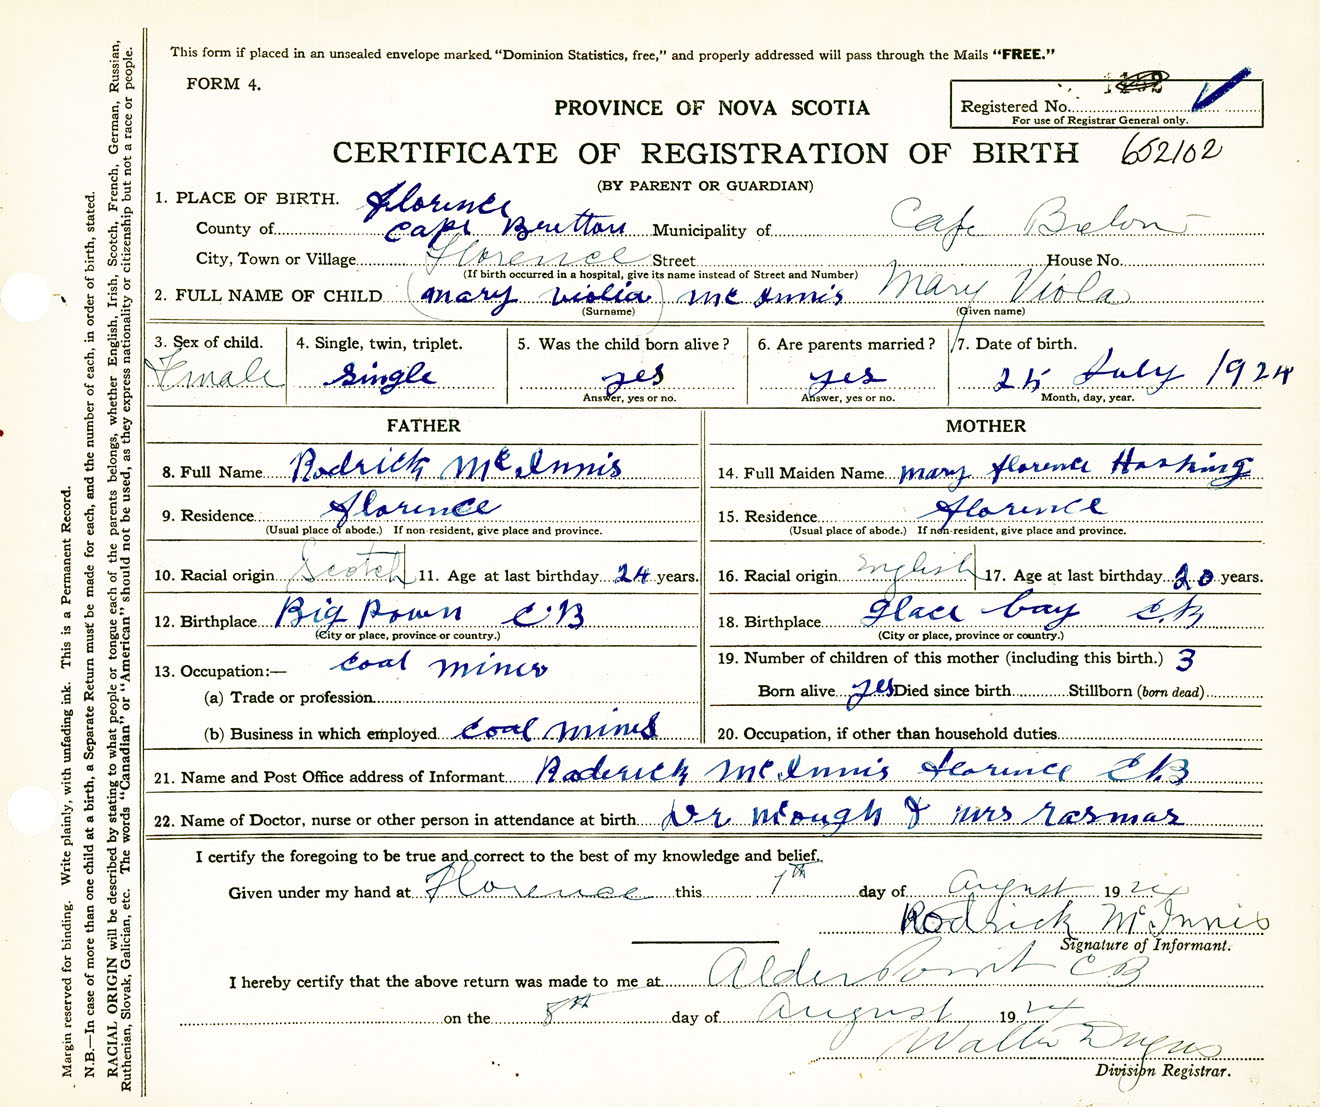 This form if placed in an unsealed envelope marked "Dominion Statistics, free," and properly addressed will pass through the Mails "FREE."
FORM 4.
PROVINCE OF NOVA SCOTIA
Registered No.
For use of Registrar General only.
CERTIFICATE OF REGISTRATION OF BIRTH 652102
(BY PARENT OR GUARDIAN)
1. PLACE OF BIRTH. Florence
County of Cape Bretton Municipality of Cape Breton
City, Town or Village Florence Street House No.
(If birth occurred in a hospital, give its name instead of Street and Number)
2. FULL NAME OF CHILD (Mary Violia) McInnis Mary Viola
(Surname) (Given name)
3. Sex of child. 4. Single, twin, triplet. 5. Was the child born alive? 6. Are parents married? 7. Date of birth.
Female Single yes yes 25 July 1924
Answer, yes or no. Answer, yes or no. Month, day, year.
FATHER MOTHER
8. Full Name Rodrick McInnis 14. Full Maiden Name Mary Florence Hosking
9. Residence Florence 15. Residence Florence
(Usual place of abode.) If non-resident, give place and province. (Usual place of abode.) If non-resident, give place and province.
10. Racial origin Scotch 11. Age at last birthday 24 years. 16. Racial origin English 17. Age at last birthday 20 years.
12. Birthplace Big Pown C.B 18. Birthplace Glace bay C.B
(City or place, province or country.) (City or place, province or country.)
13. Occupation:— coal miner 19. Number of children of this mother (including this birth.) 3
(a) Trade or profession Born alive yes Died since birth Stillborn (born dead)
(b) Business in which employed coal mines 20. Occupation, if other than household duties
21. Name and Post Office address of Informant Roderick McInnis Florence C.B
22. Name of Doctor, nurse or other person in attendance at birth Dr & Mrs Rasmas
I certify the foregoing to be true and correct to the best of my knowledge and belief.
Given under my hand at Florence this 7th day of August 1924
Rodrick McInnis
Signature of Informant.
I hereby certify that the above return was made to me at Alder Point CB
on the 8th day of August 1924
Walter
Division Registrar.
Margin reserved for binding. Write plainly, with unfading ink. This is a Permanent Record.
N.B.—In case of more than one child at a birth, a Separate Return must be made for each, and the number of each, in order of birth, stated.
RACIAL ORIGIN will be described by stating to what people or tongue each of the parents belongs, whether English, Irish, Scotch, French, German, Russian,
Ruthenian, Slovak, Galician, etc. The words "Canadian" or "American" should not be used, as they express nationality or citizenship but not a race or people.